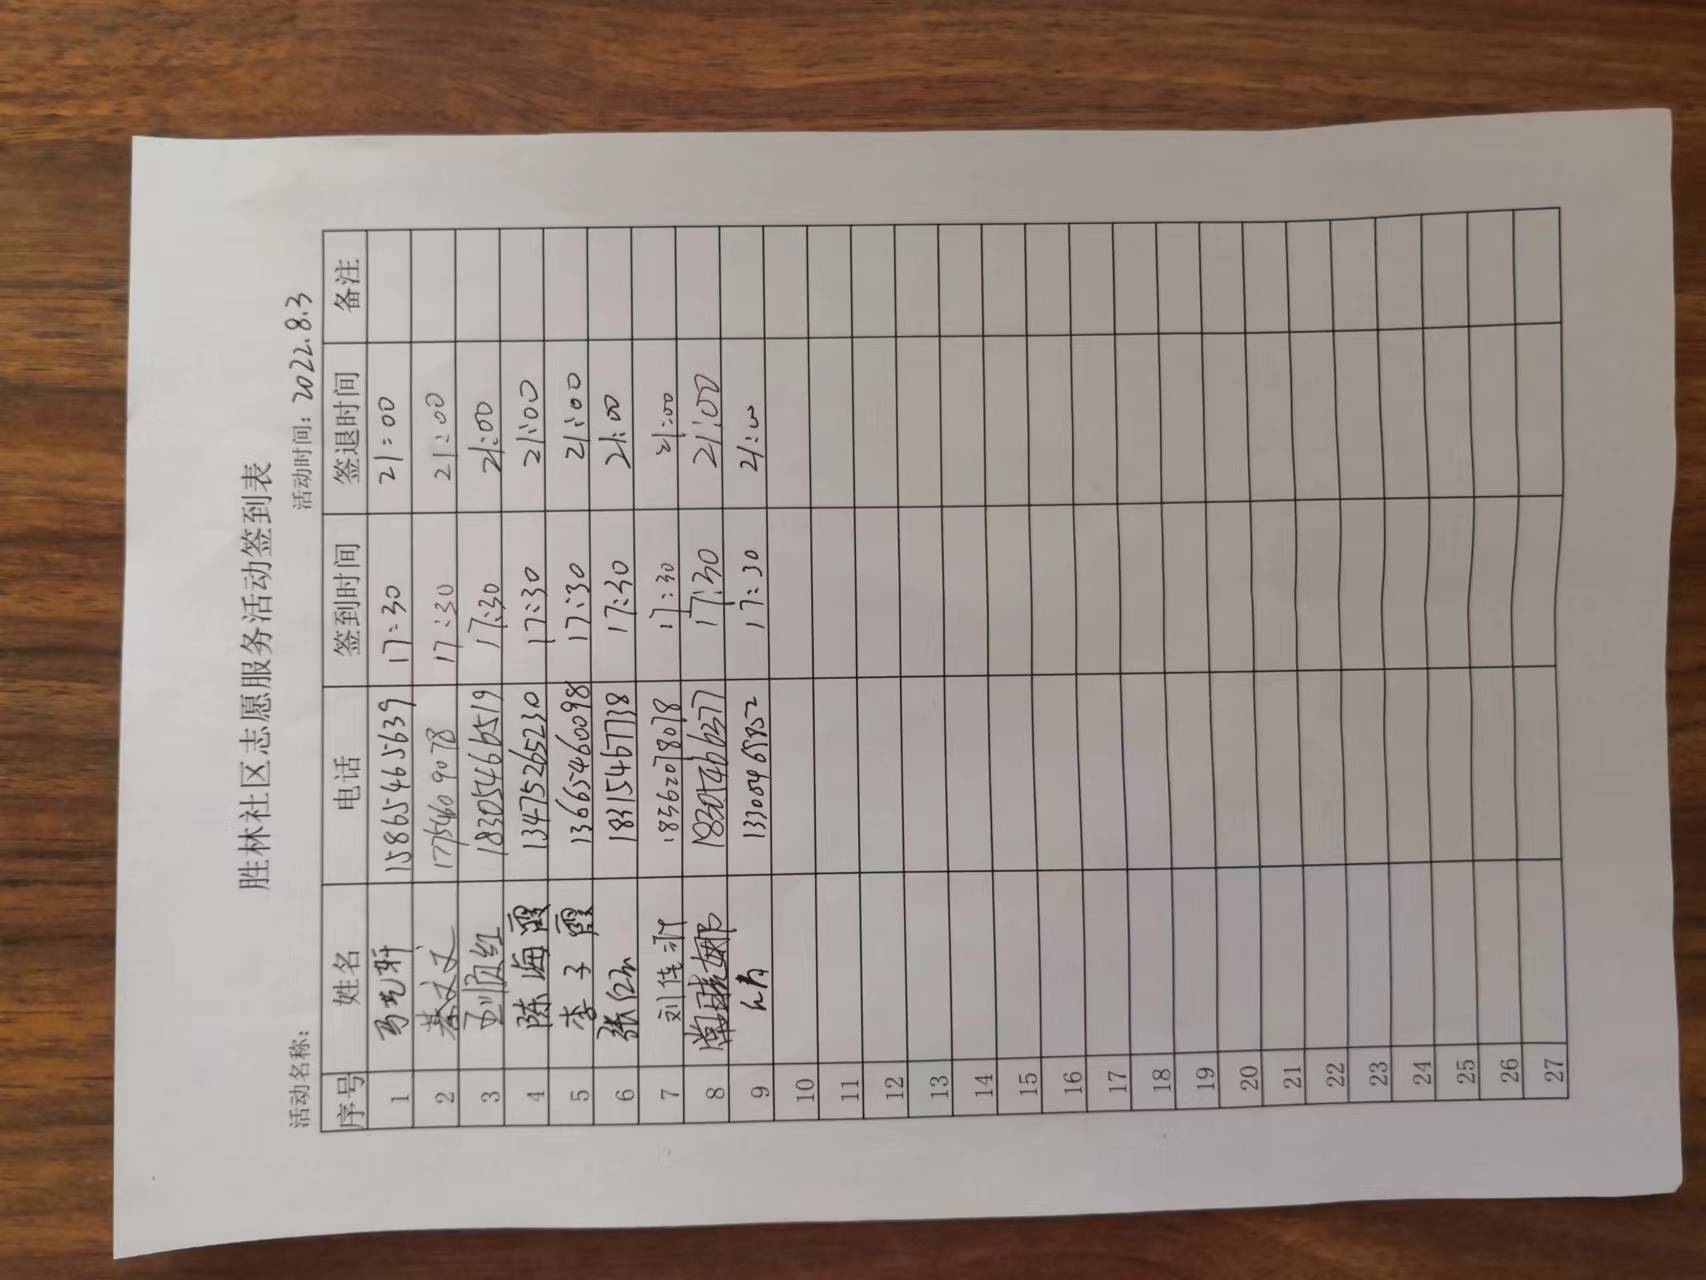 胜林社区志愿服务活动签到表
活动名称： 活动时间：2022.8.3
序号 姓名 电话 签到时间 签退时间 备注
1 15865465639 17:30 21:00
2 蔡文文 17754609078 17:30 21:00
3 18305466519 17:30 21:00
4 陈海霞 13475265230 17:30 21:00
5 李子霞 13665460098 17:30 21:00
6 张红 18315467738 17:30 21:00
7 18562078078 17:30 21:00
8 18305466377 17:30 21:00
9 17:30 21:00
10
11
12
13
14
15
16
17
18
19
20
21
22
23
24
25
26
27